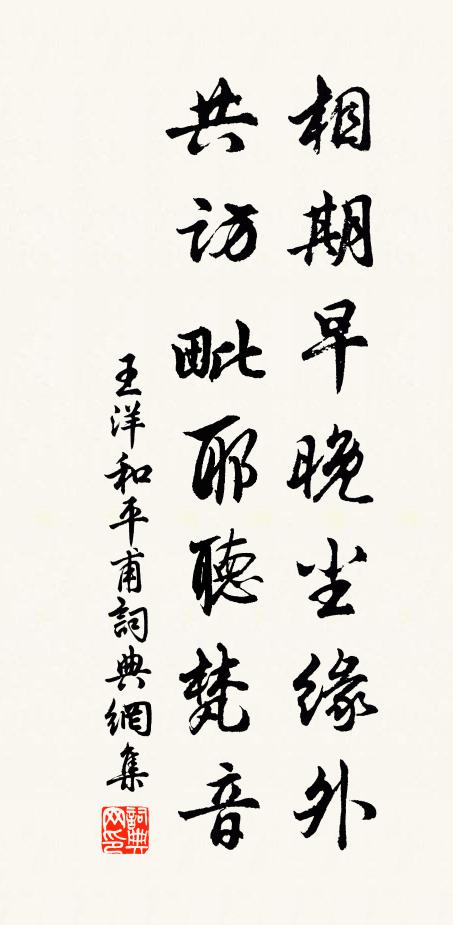 相期早晚尘缘外
共访毗耶聽梵音
王洋和平甫詞典網集
詞典网印